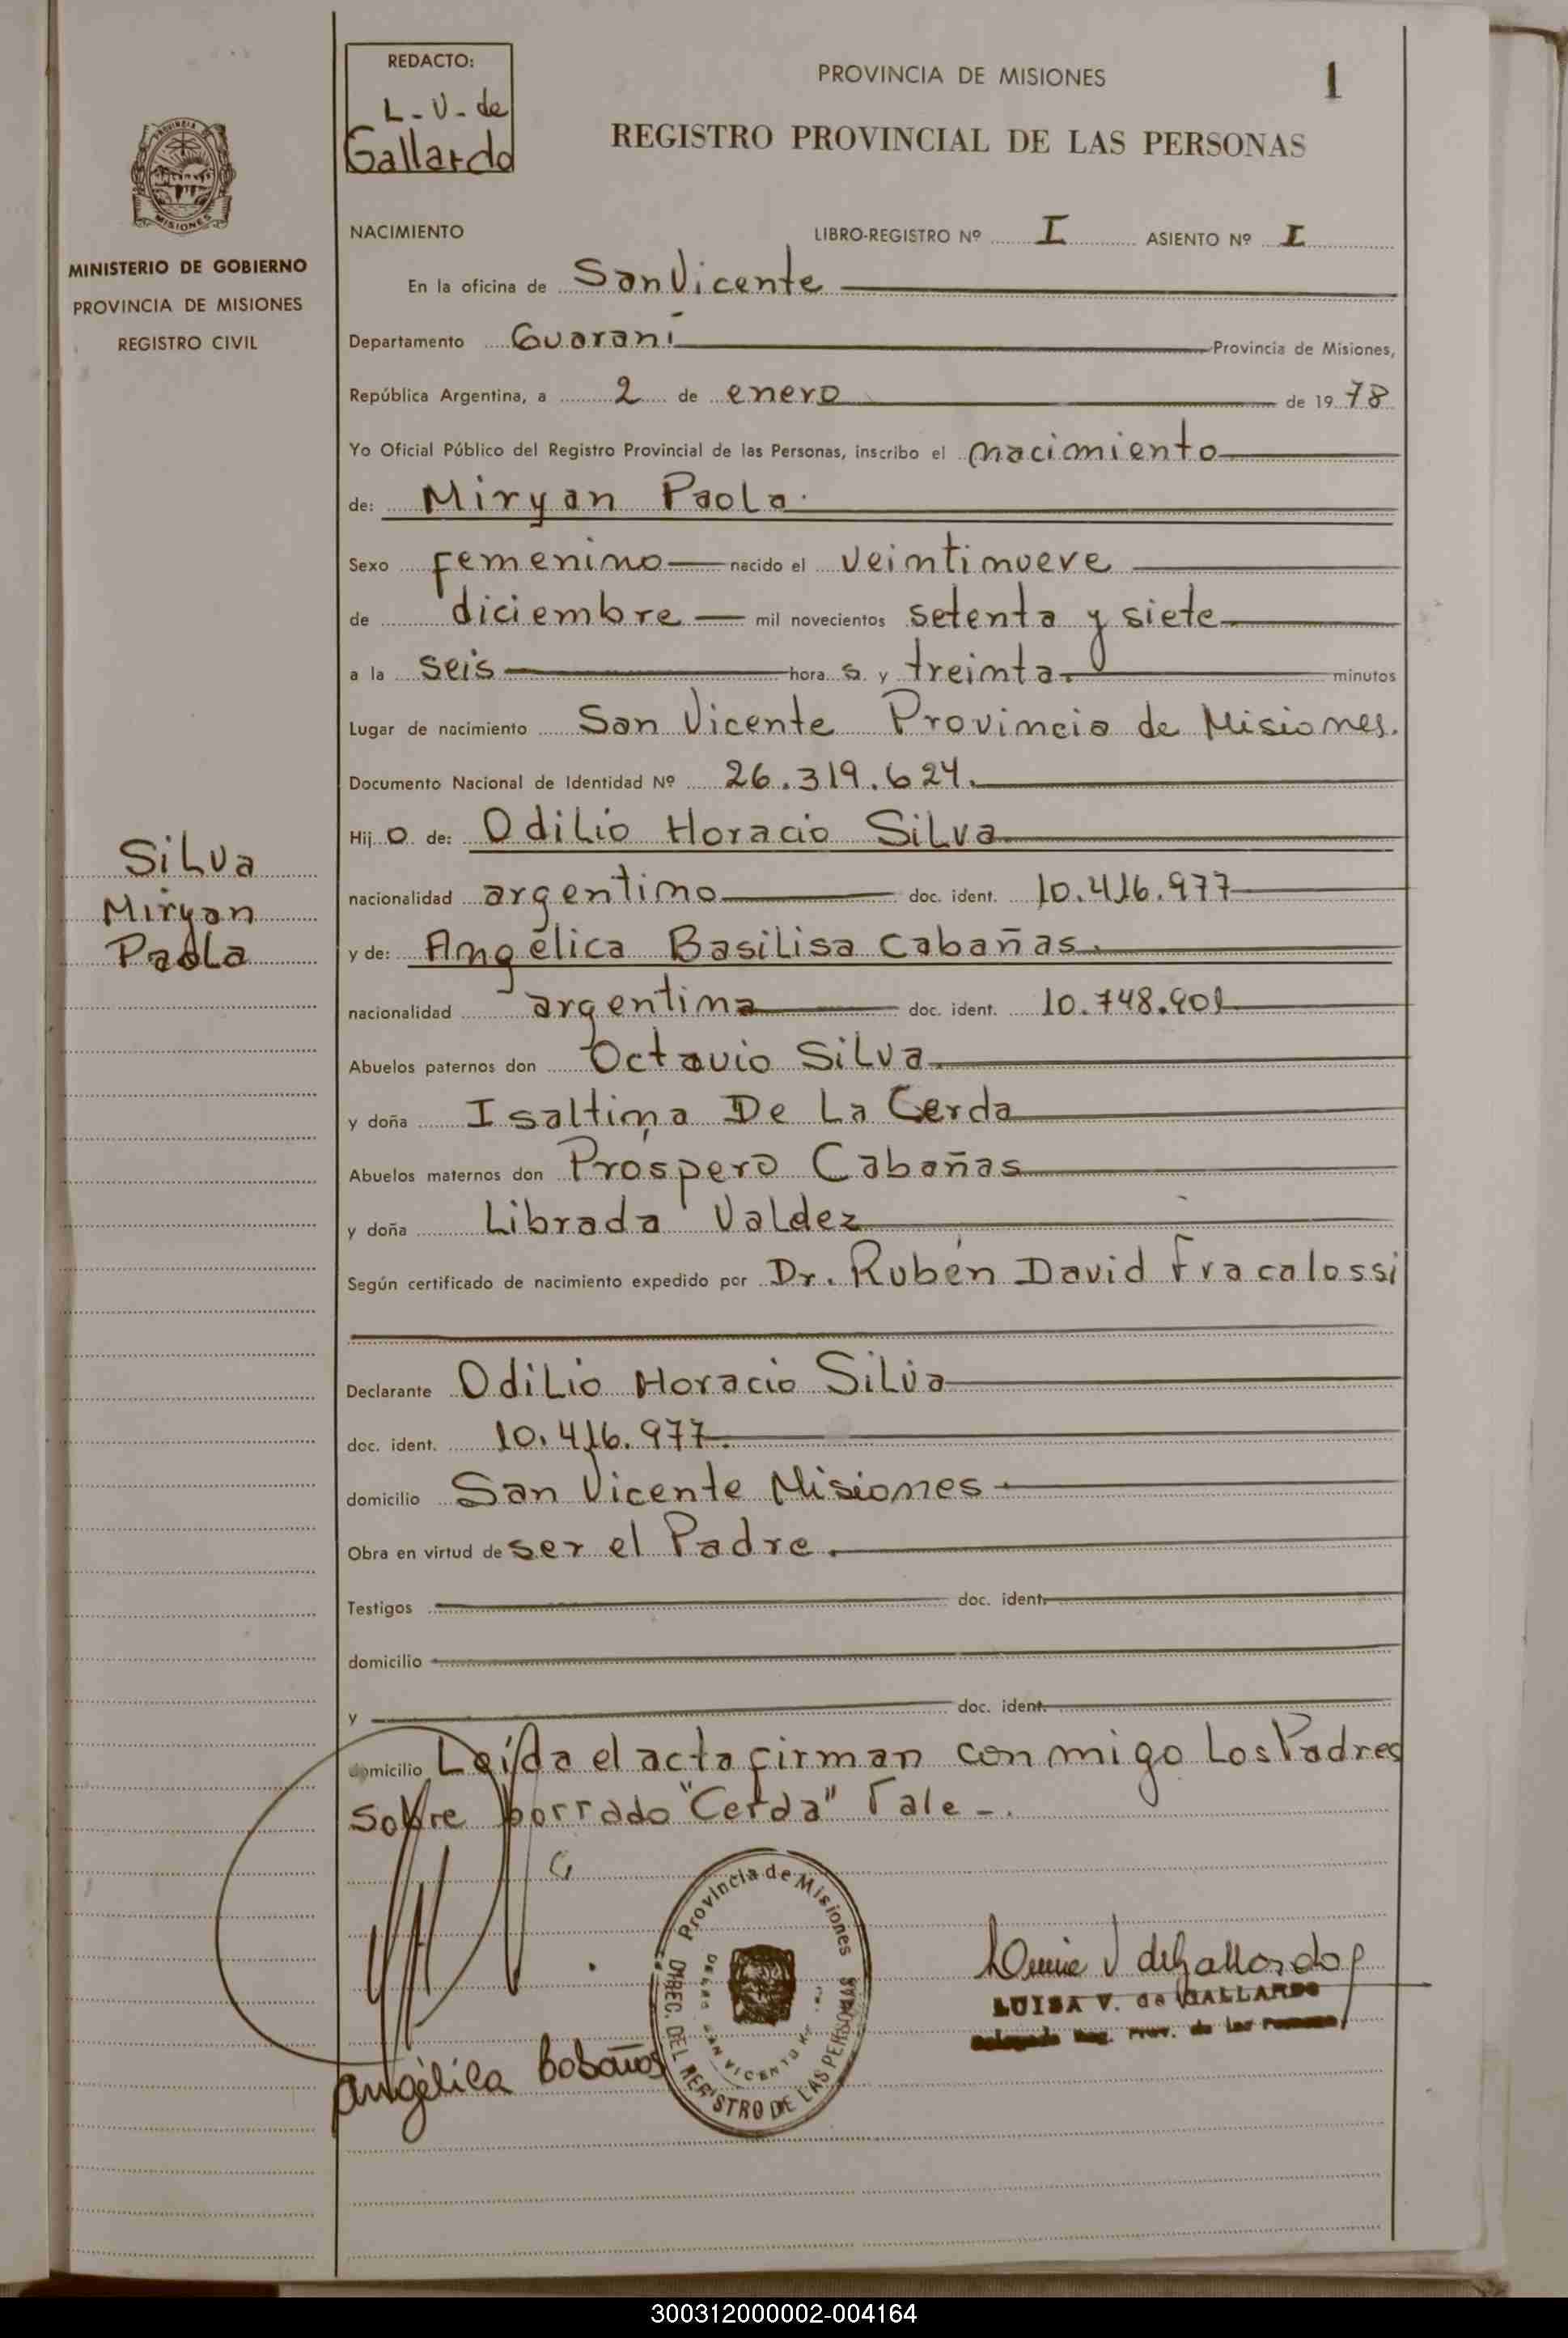 REDACTO:
L-V-de
Gallardo
PROVINCIA DE MISIONES
1
REGISTRO PROVINCIAL DE LAS PERSONAS
MISIONES
MINISTERIO DE GOBIERNO
PROVINCIA DE MISIONES
REGISTRO CIVIL
NACIMIENTO LIBRO-REGISTRO Nº I ASIENTO Nº I
En la oficina de San Vicente
Departamento Guaraní Provincia de Misiones,
República Argentina, a 2 de enero de 1978
Yo Oficial Público del Registro Provincial de las Personas, inscribo el nacimiento
de: Miryan Paola.
Sexo femenino nacido el veintinueve
de diciembre mil novecientos setenta y siete
a la seis hora s y treinta minutos
Lugar de nacimiento San Vicente Provincia de Misiones.
Documento Nacional de Identidad Nº 26.319.624.
Hij o de: Odilio Horacio Silva
nacionalidad argentino doc. ident. 10.416.977
y de: Angélica Basilisa Cabañas.
nacionalidad argentina doc. ident. 10.748.901
Abuelos paternos don Octavio Silva
y doña Isaltina De La Cerda
Abuelos maternos don Próspero Cabañas
y doña Librada Valdez
Según certificado de nacimiento expedido por Dr. Rubén David Fracalossi
Declarante Odilio Horacio Silva
doc. ident. 10.416.977.
domicilio San Vicente Misiones
Obra en virtud de ser el Padre.
Testigos doc. ident.
domicilio
y doc. ident.
domicilio Leída el acta firman conmigo Los Padres
Sobre borrado "Cerda" Vale-.
Silva
Miryan
Paola
Provincia de Misiones
DIREC. DEL REGISTRO DE LAS PERSONAS
SAN VICENTE
Luisa V deGallardo
LUISA V. de GALLARDO
Delegada Reg. Prov. de las Personas
Angélica Cabañas
300312000002-004164